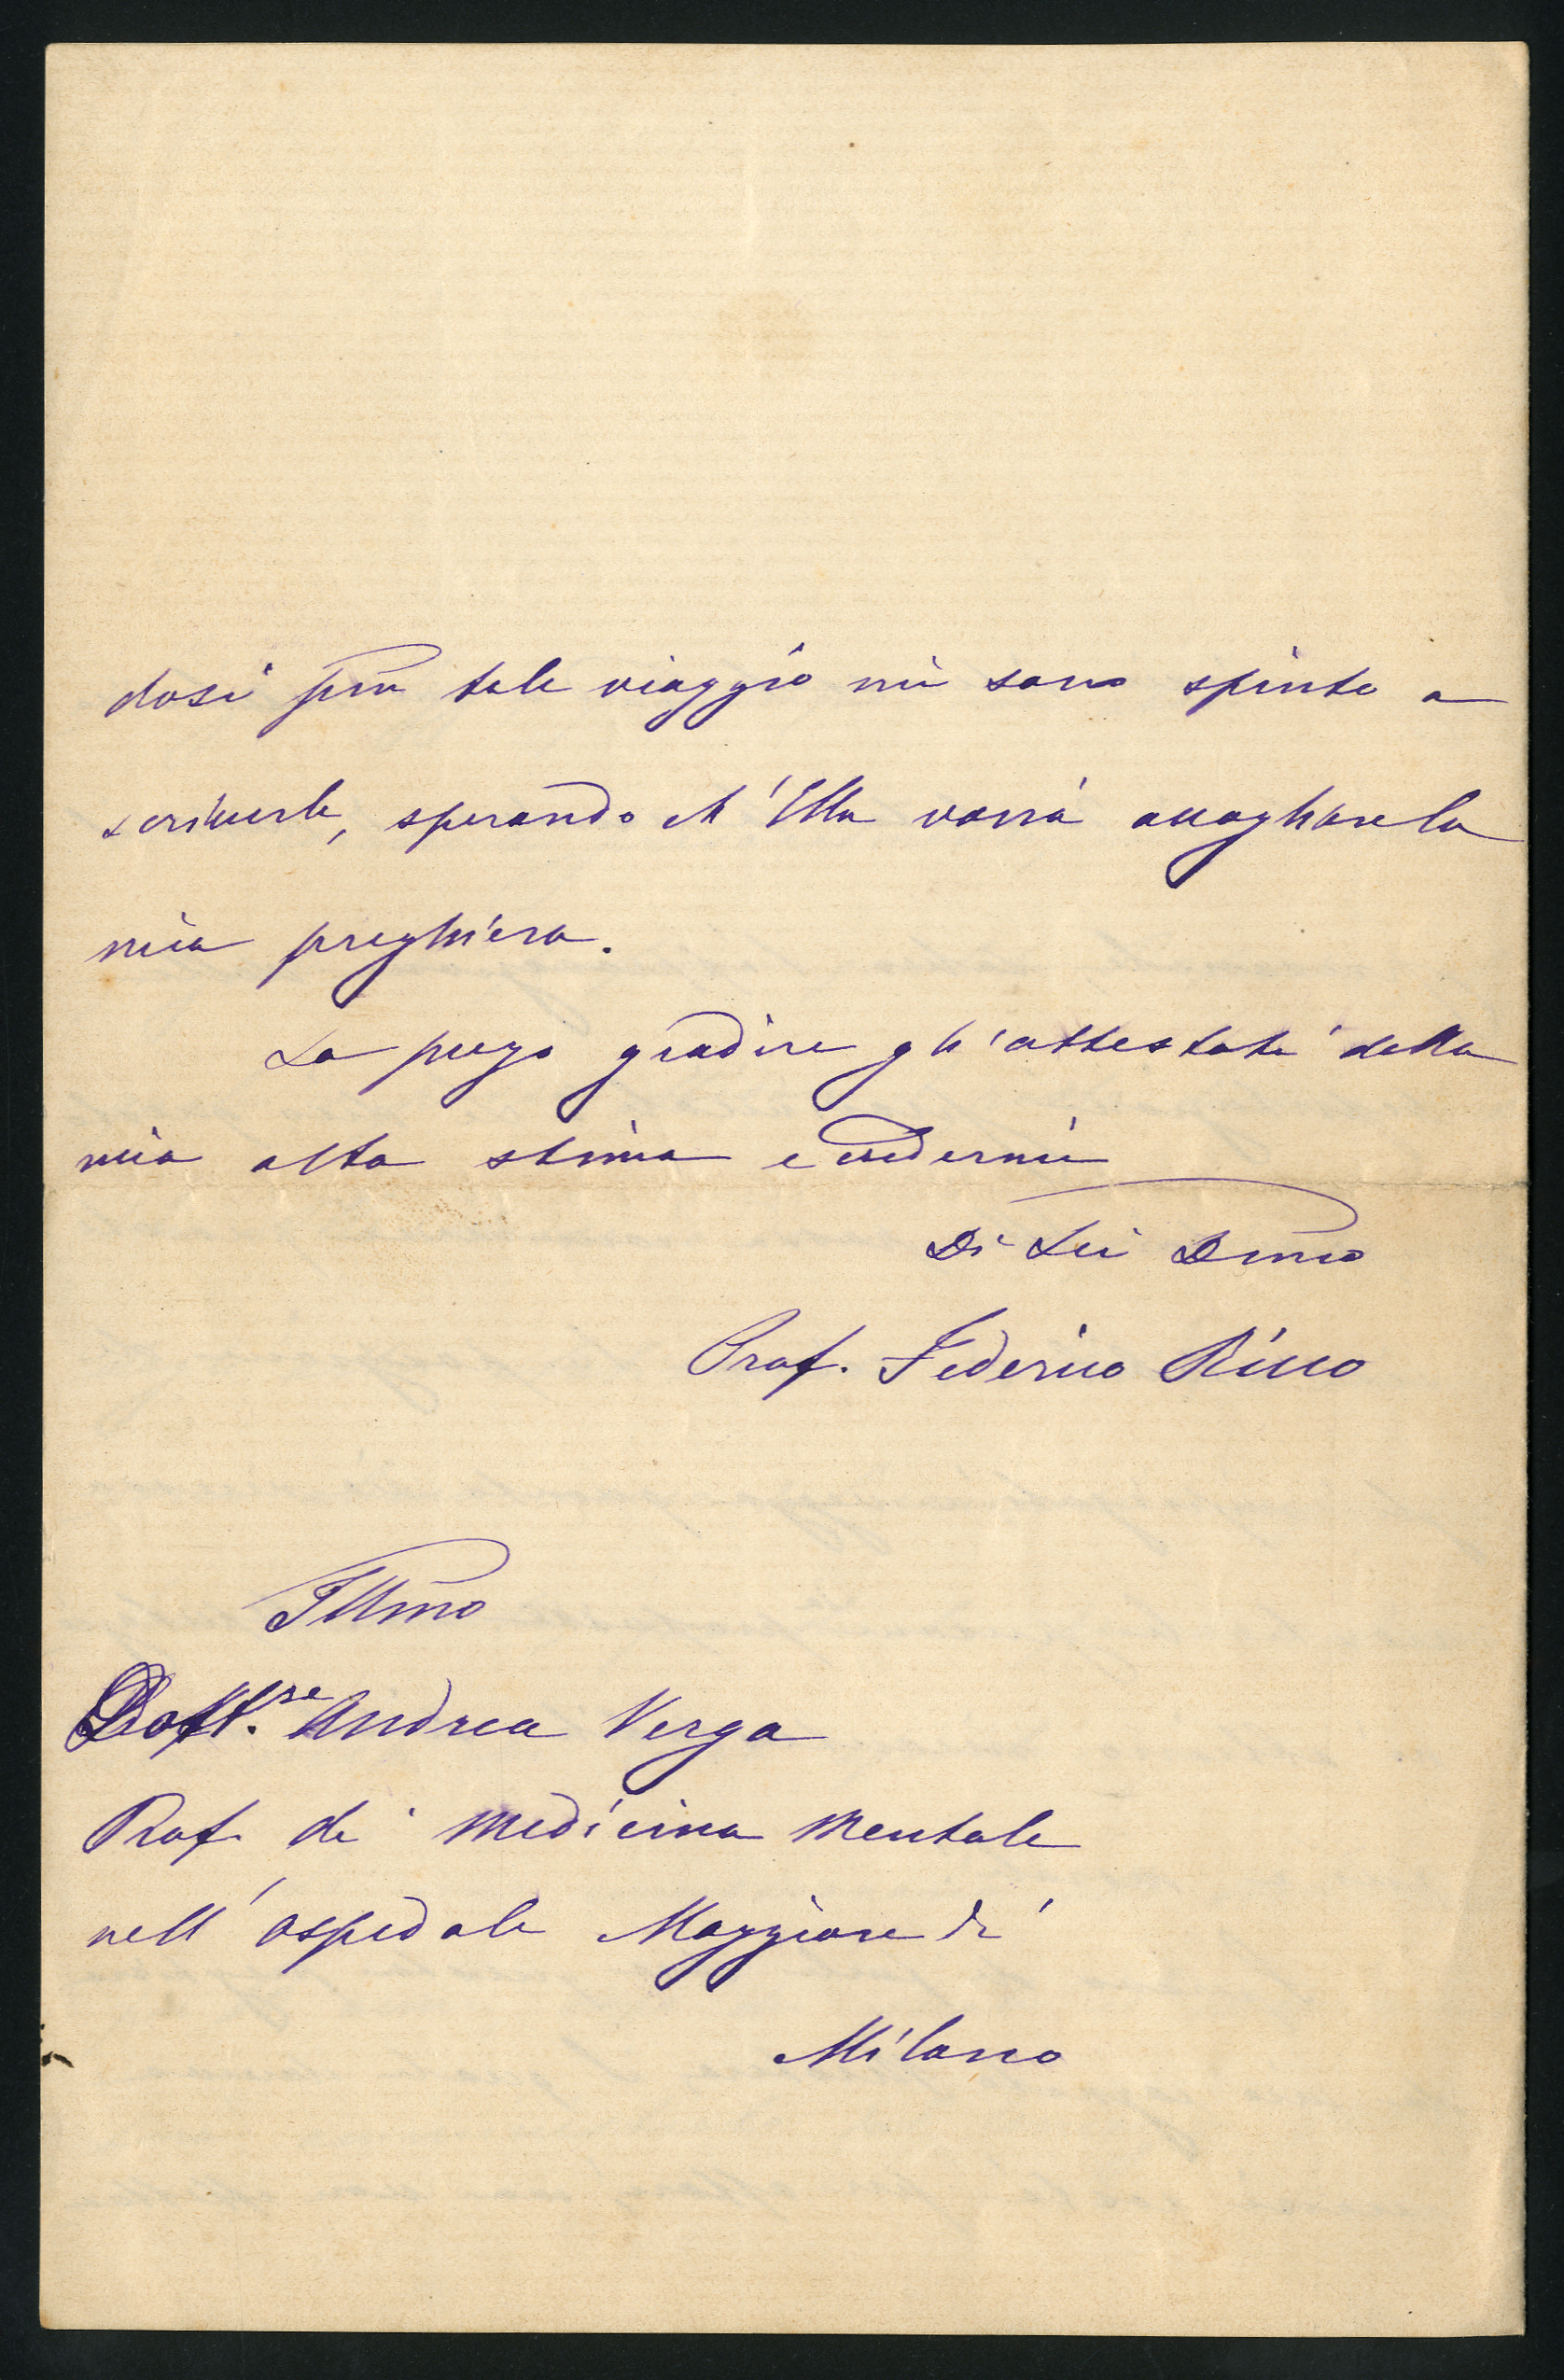 dosi per tale viaggio mi sono spinto a
scriverle, sperando ch'Ella vorrà accogliere la
mia preghiera.
La prego gradire gli attestati della
mia alta stima e credermi
Di Lei Dmo
Prof. Federico Ricco
Illmo
Dott.re Andrea Verga
Prof. di Medicina Mentale
nell'Ospedale Maggiore di
Milano